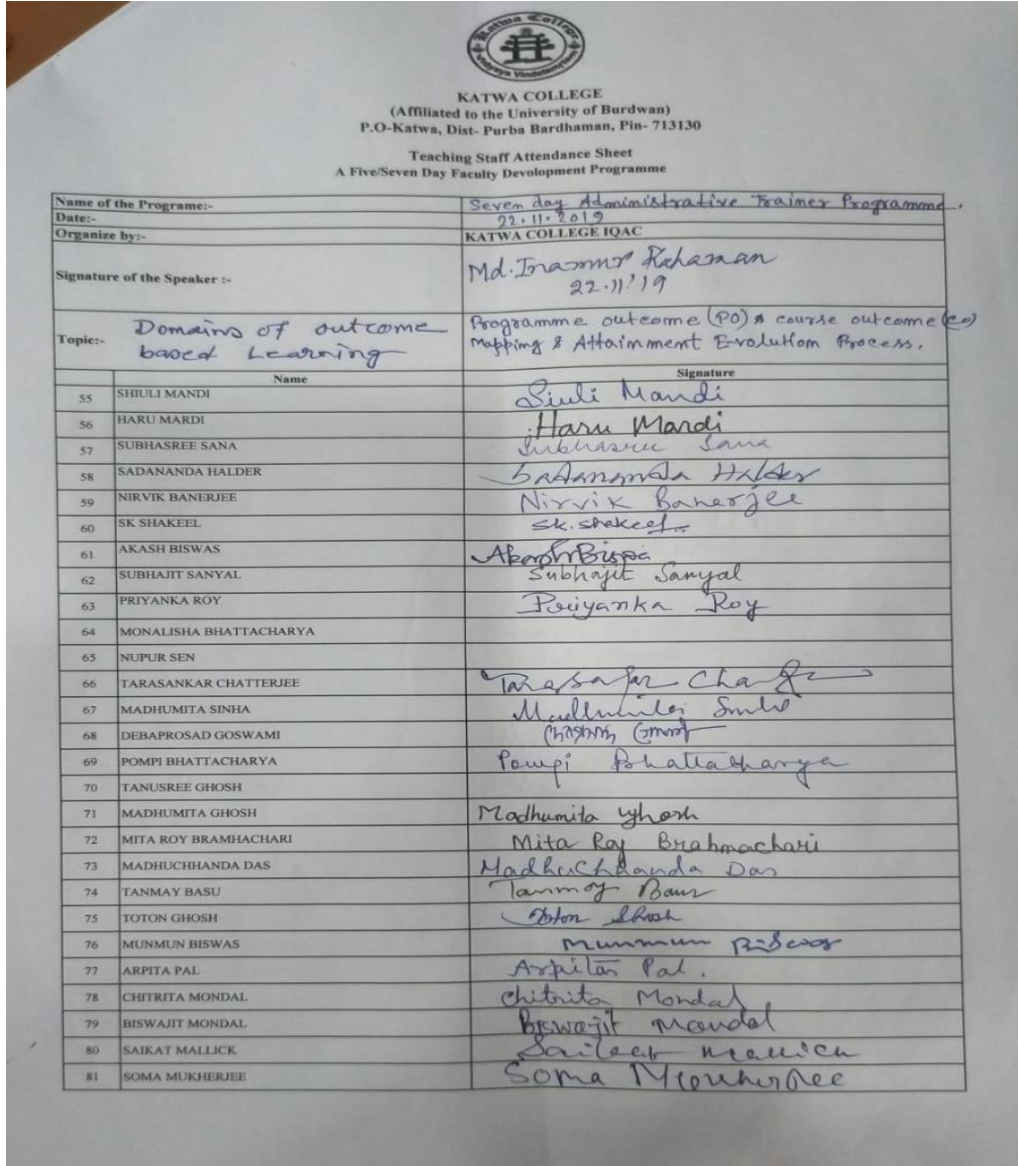 Katwa College
Vidyaya Vindatemritam
KATWA COLLEGE
(Affiliated to the University of Burdwan)
P.O-Katwa, Dist- Purba Bardhaman, Pin- 713130
Teaching Staff Attendance Sheet
A Five/Seven Day Faculty Devolopment Programme
Name of the Programe:- Seven day Administrative Trainer Programme.
Date:- 22.11.2019
Organize by:- KATWA COLLEGE IQAC
Signature of the Speaker :- Md. Inamur Rahaman
22.11.'19
Topic:- Domains of outcome based Learning Programme outcome (PO) & course outcome (co)
Mapping & Attainment Evolution Process.
Name Signature
55 SHIULI MANDI Siuli Mandi
56 HARU MARDI Haru Mardi
57 SUBHASREE SANA Subhasree Sana
58 SADANANDA HALDER Sadananda Halder
59 NIRVIK BANERJEE Nirvik Banerjee
60 SK SHAKEEL Sk. Shakeel
61 AKASH BISWAS Akash Biswas
62 SUBHAJIT SANYAL Subhajit Sanyal
63 PRIYANKA ROY Priyanka Roy
64 MONALISHA BHATTACHARYA
65 NUPUR SEN
66 TARASANKAR CHATTERJEE
67 MADHUMITA SINHA Madhumita Sinha
68 DEBAPROSAD GOSWAMI
69 POMPI BHATTACHARYA Pompi Bhattacharya
70 TANUSREE GHOSH
71 MADHUMITA GHOSH Madhumita Ghosh
72 MITA ROY BRAMHACHARI Mita Roy Brahmachari
73 MADHUCHHANDA DAS Madhuchhanda Das
74 TANMAY BASU Tanmoy Basu
75 TOTON GHOSH Toton Ghosh
76 MUNMUN BISWAS Munmun Biswas
77 ARPITA PAL Arpita Pal.
78 CHITRITA MONDAL Chitrita Mondal
79 BISWAJIT MONDAL Biswajit Mondal
80 SAIKAT MALLICK Saikat Mallick
81 SOMA MUKHERJEE Soma Mukherjee